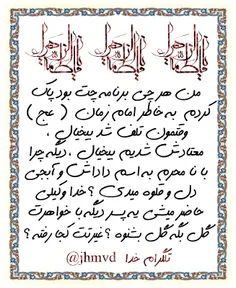 من هر چی برنامه چت بود پاک
کردم به خاطر امام زمان ( عج )
وقتمون تلف شد بیخیال ،
معتادش شدیم بیخیال ، دیگه چرا
با نا محرم به اسم داداش و آبجی
دل و قلوه میدی ؟ خدا وکیلی
حاضر میشی یه پسر دیگه با خواهرت
گل بگه گل بشنوه ؟ غیرتت کجا رفته ؟
تلگرام خدا @jhmvd